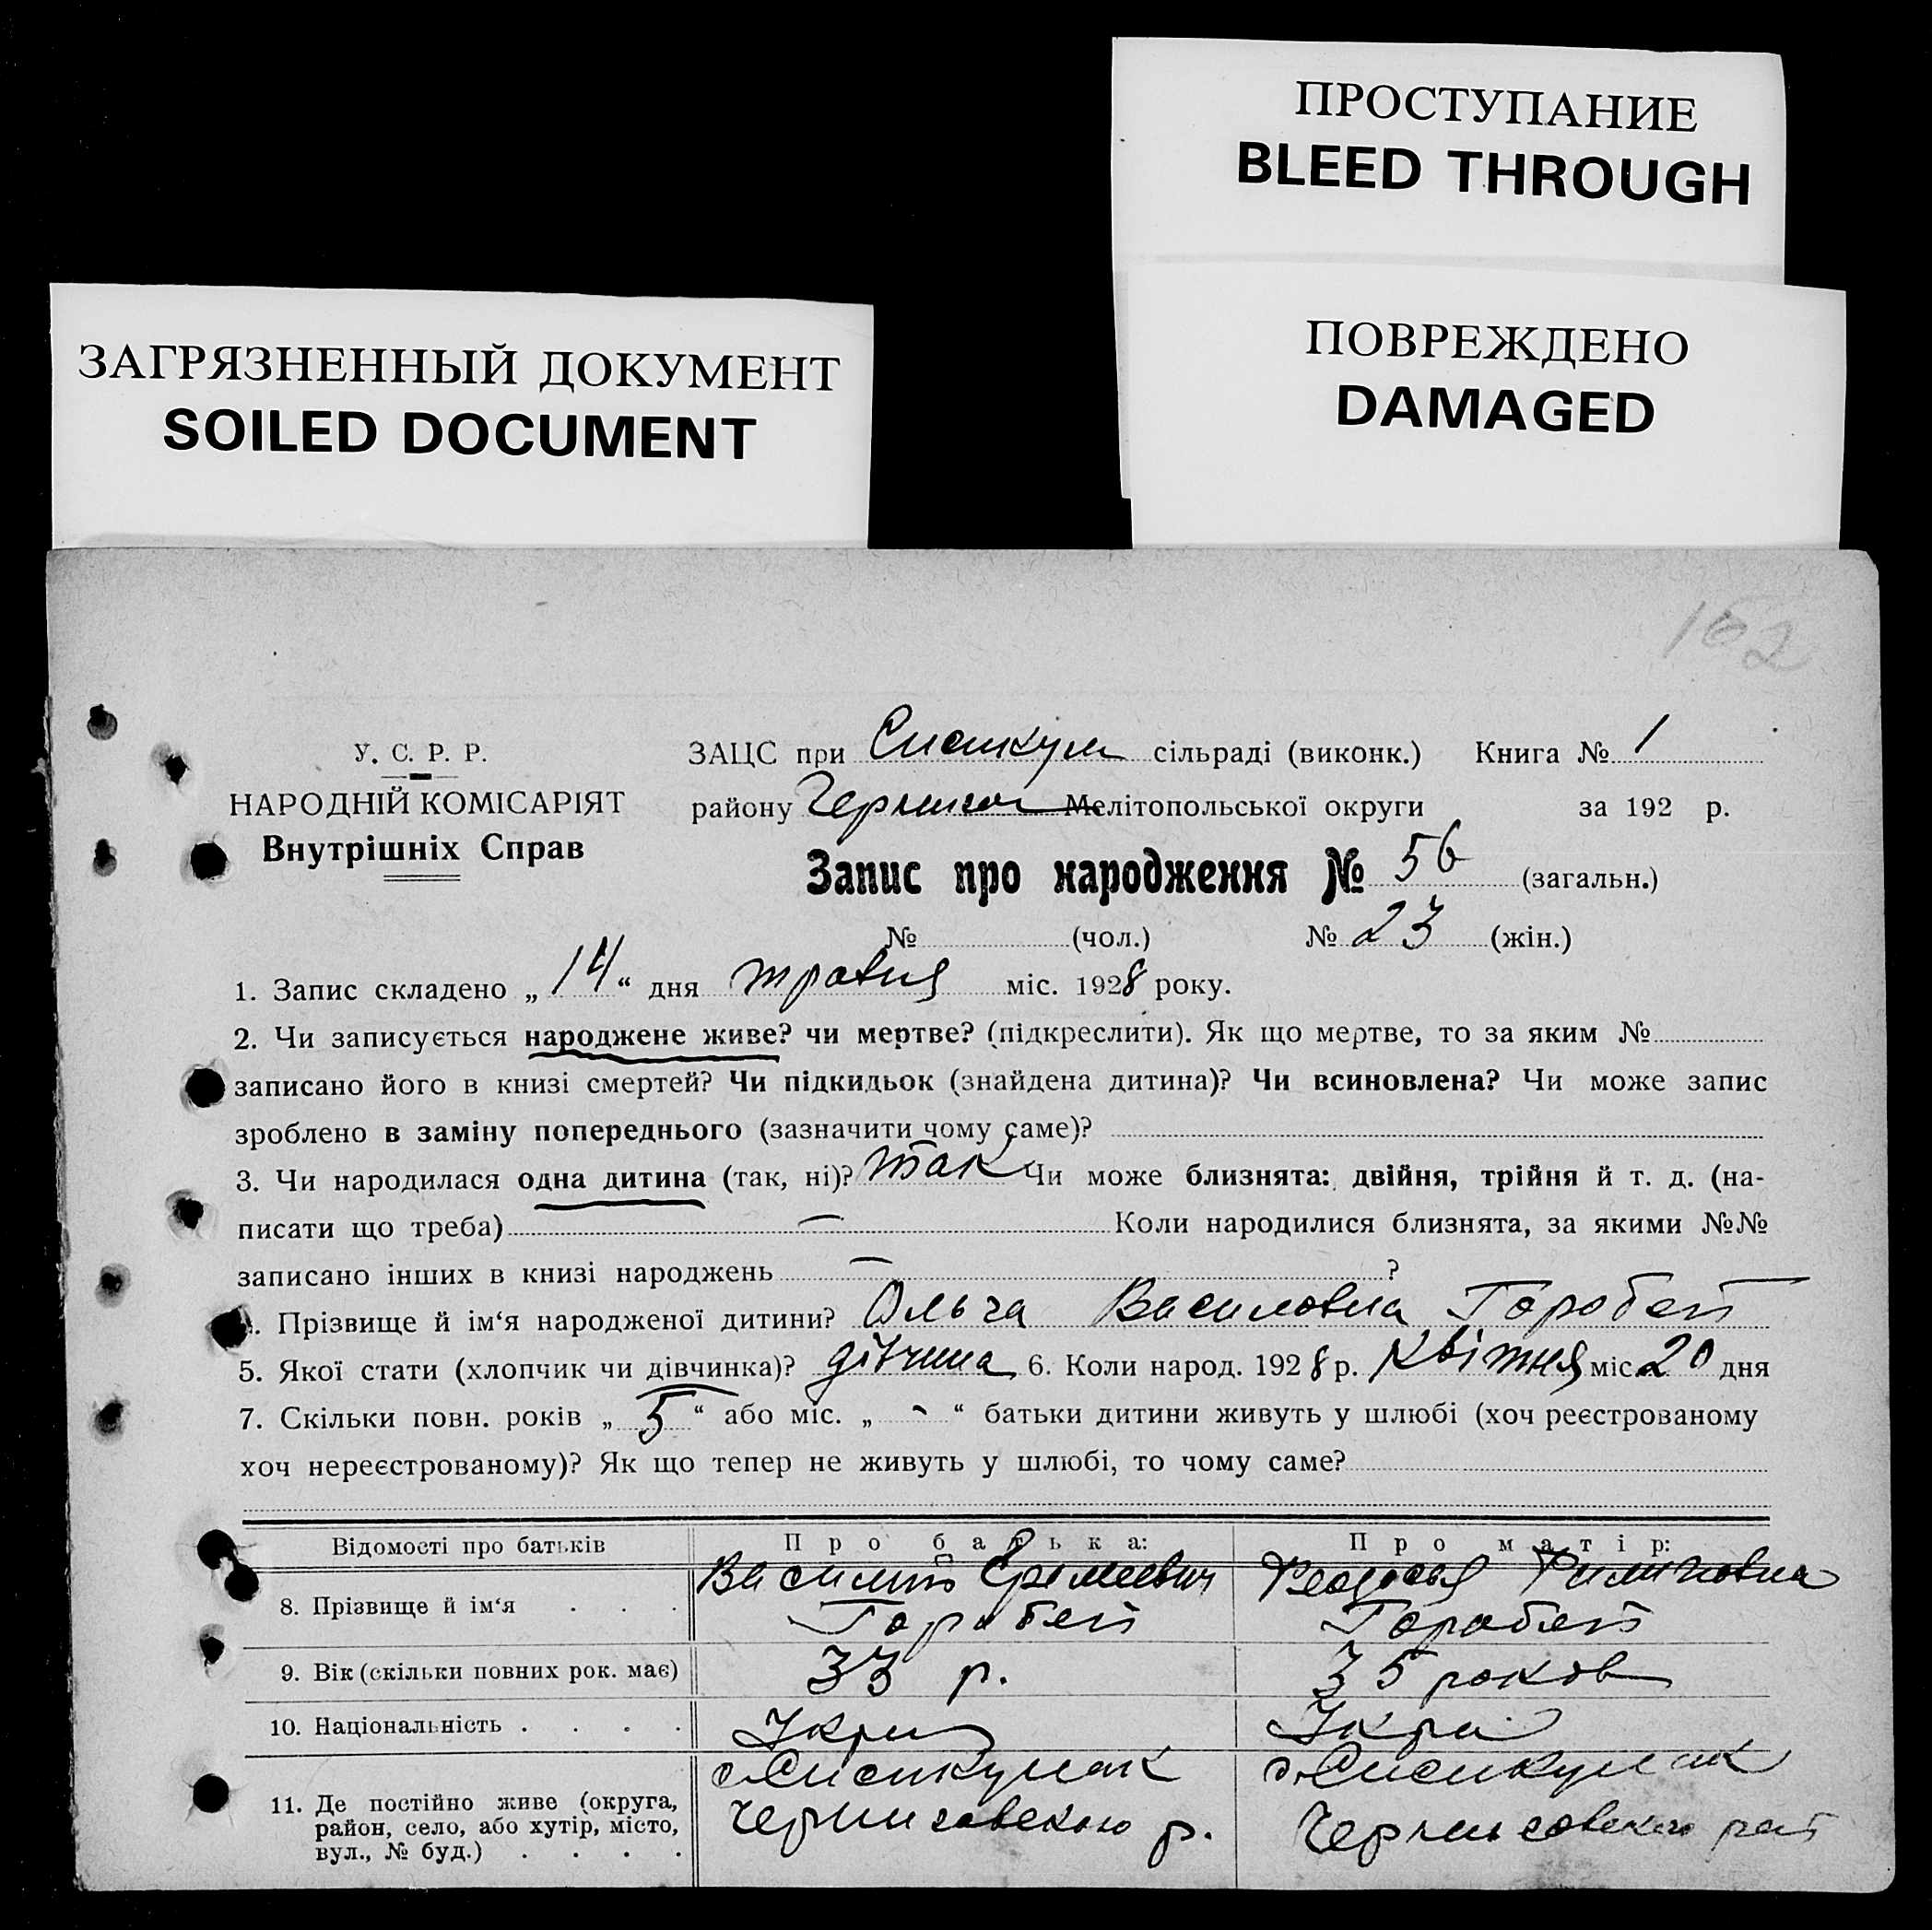 ПРОСТУПАНИЕ
BLEED THROUGH
ЗАГРЯЗНЕННЫЙ ДОКУМЕНТ
SOILED DOCUMENT
ПОВРЕЖДЕНО
DAMAGED
162
У. С. Р. Р.
НАРОДНІЙ КОМІСАРІЯТ
Внутрішніх Справ
ЗАЦС при сільраді (виконк.) Книга № 1
району Мелітопольської округи за 192 р.
Запис про народження № 56 (загальн.)
№ (чол.) № 23 (жін.)
1. Запис складено „ 14 “ дня травня міс. 1928 року.
2. Чи записується народжене живе? чи мертве? (підкреслити). Як що мертве, то за яким №
записано його в книзі смертей? Чи підкидьок (знайдена дитина)? Чи всиновлена? Чи може запис
зроблено в заміну попереднього (зазначити чому саме)?
3. Чи народилася одна дитина (так, ні)? так Чи може близнята: двійня, трійня й т. д. (на-
писати що треба) — Коли народилися близнята, за якими №№
записано інших в книзі народжень — ?
. Прізвище й ім‘я народженої дитини? Ольга Василовна Горобей
5. Якої стати (хлопчик чи дівчинка)? дівчина 6. Коли народ. 1928 р. квітня міс. 20 дня
7. Скільки повн. років „ 5 “ або міс. „ - “ батьки дитини живуть у шлюбі (хоч реєстрованому
хоч нереєстрованому)? Як що тепер не живуть у шлюбі, то чому саме?
Відомості про батьків Про батька: Про матір:
8. Прізвище й ім‘я . . . Василь Єремеевич Горобей Феодосья Филиповна Горобей
9. Вік (скільки повних рок. має) 33 р. 35 роков
10. Національність . . . . Укр Укра
11. Де постійно живе (округа,
район, село, або хутір, місто,
вул., № буд.) . . . . р.